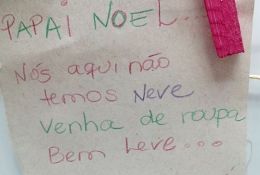 PAPAI NOEL...
Nós aqui não
temos Neve
Venha de roupa
Bem Leve...